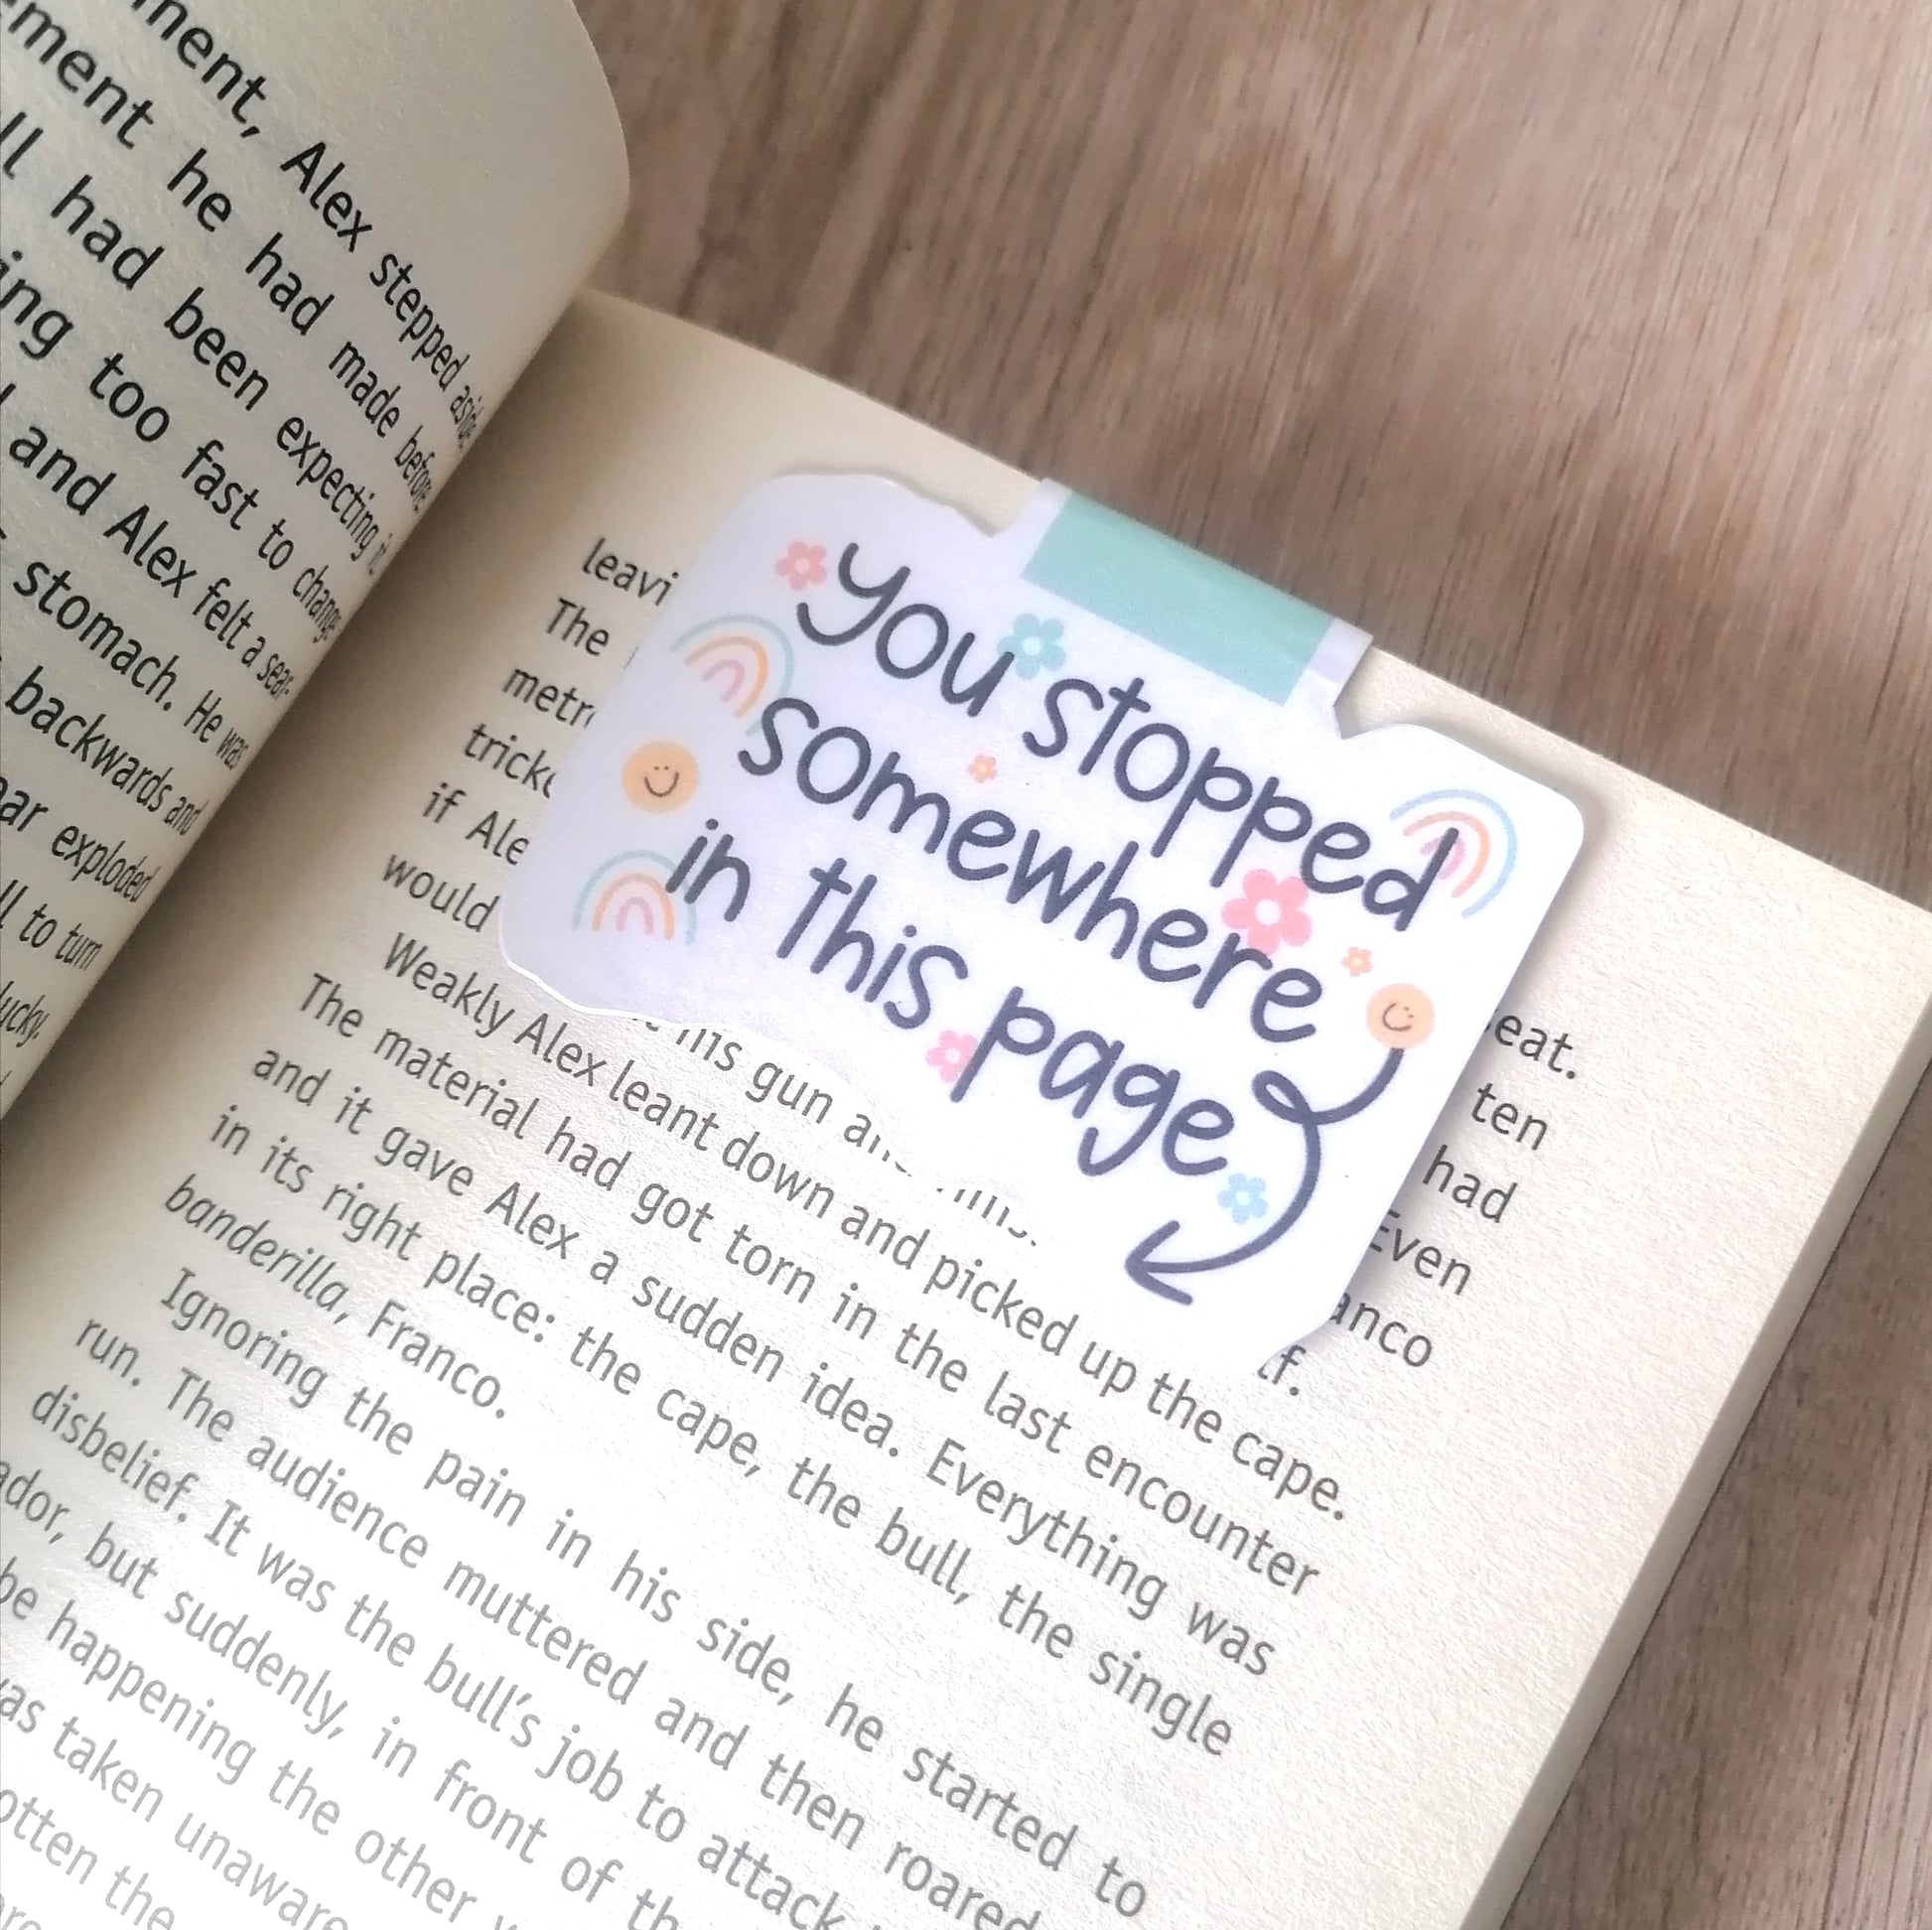 Alex stepped aside
he had made before.
had been expecting it.
too fast to change
and Alex felt a sear-
stomach. He was
backwards and
exploded
to turn
lucky.
You stopped
somewhere
in this page
The
if
would
ten
had
Even
his gun
Weakly Alex leant down and picked up the cape.
The material had got torn in the last encounter
and it gave Alex a sudden idea. Everything was
in its right place: the cape, the bull, the single
banderilla, Franco.
Ignoring the pain in his side, he started to
run. The audience muttered and then roared
disbelief. It was the bull's job to attack
but suddenly, in front of
happening the other
taken unaware
the